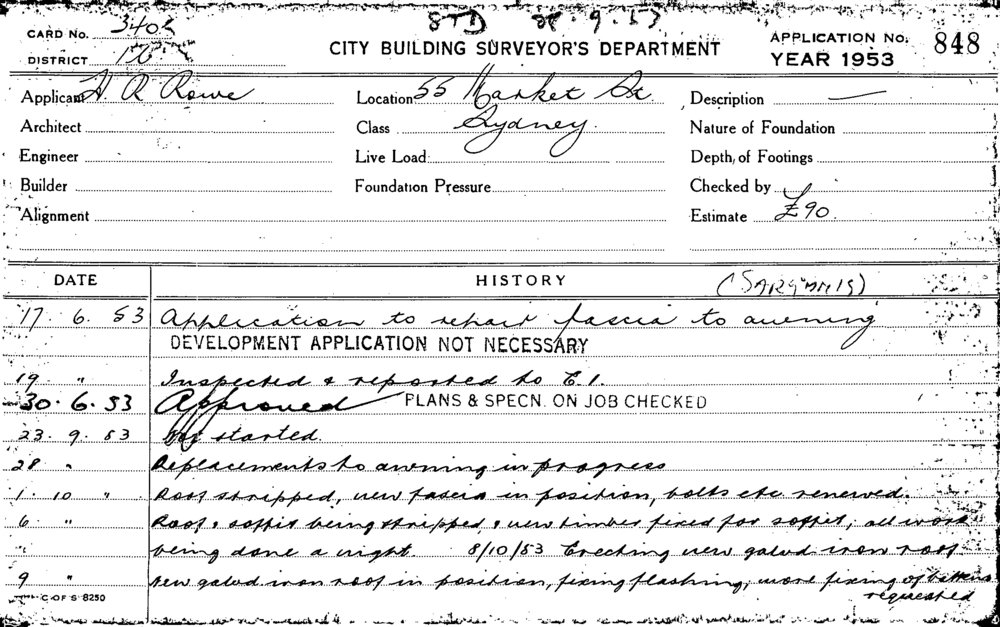 CARD No. 3402
STD 28.9.53
APPLICATION No. 848
DISTRICT
CITY BUILDING SURVEYOR'S DEPARTMENT
YEAR 1953
Applicant H R Rowe
Location 55 Market St.
Description —
Architect
Class Sydney.
Nature of Foundation
Engineer
Live Load
Depth of Footings
Builder
Foundation Pressure
Checked by
Alignment
Estimate £90.
DATE
HISTORY
17. 6. 53 Application to repair fascia to awning
DEVELOPMENT APPLICATION NOT NECESSARY
19 " Inspected & reported to E.I.
30. 6. 53 Approved PLANS & SPECN. ON JOB CHECKED
23. 9. 53 Not started.
28 " Replacements to awning in progress
1. 10 " Roof stripped, new fascia in position, bolts etc renewed.
6 " Roof & soffit being stripped, & new timber fixed for soffit, all work
" being done a night 8/10/53 Erecting new galvd iron roof
9 " New galvd iron roof in position, fixing flashing, more fixing of battens
requested
C OF S 8250